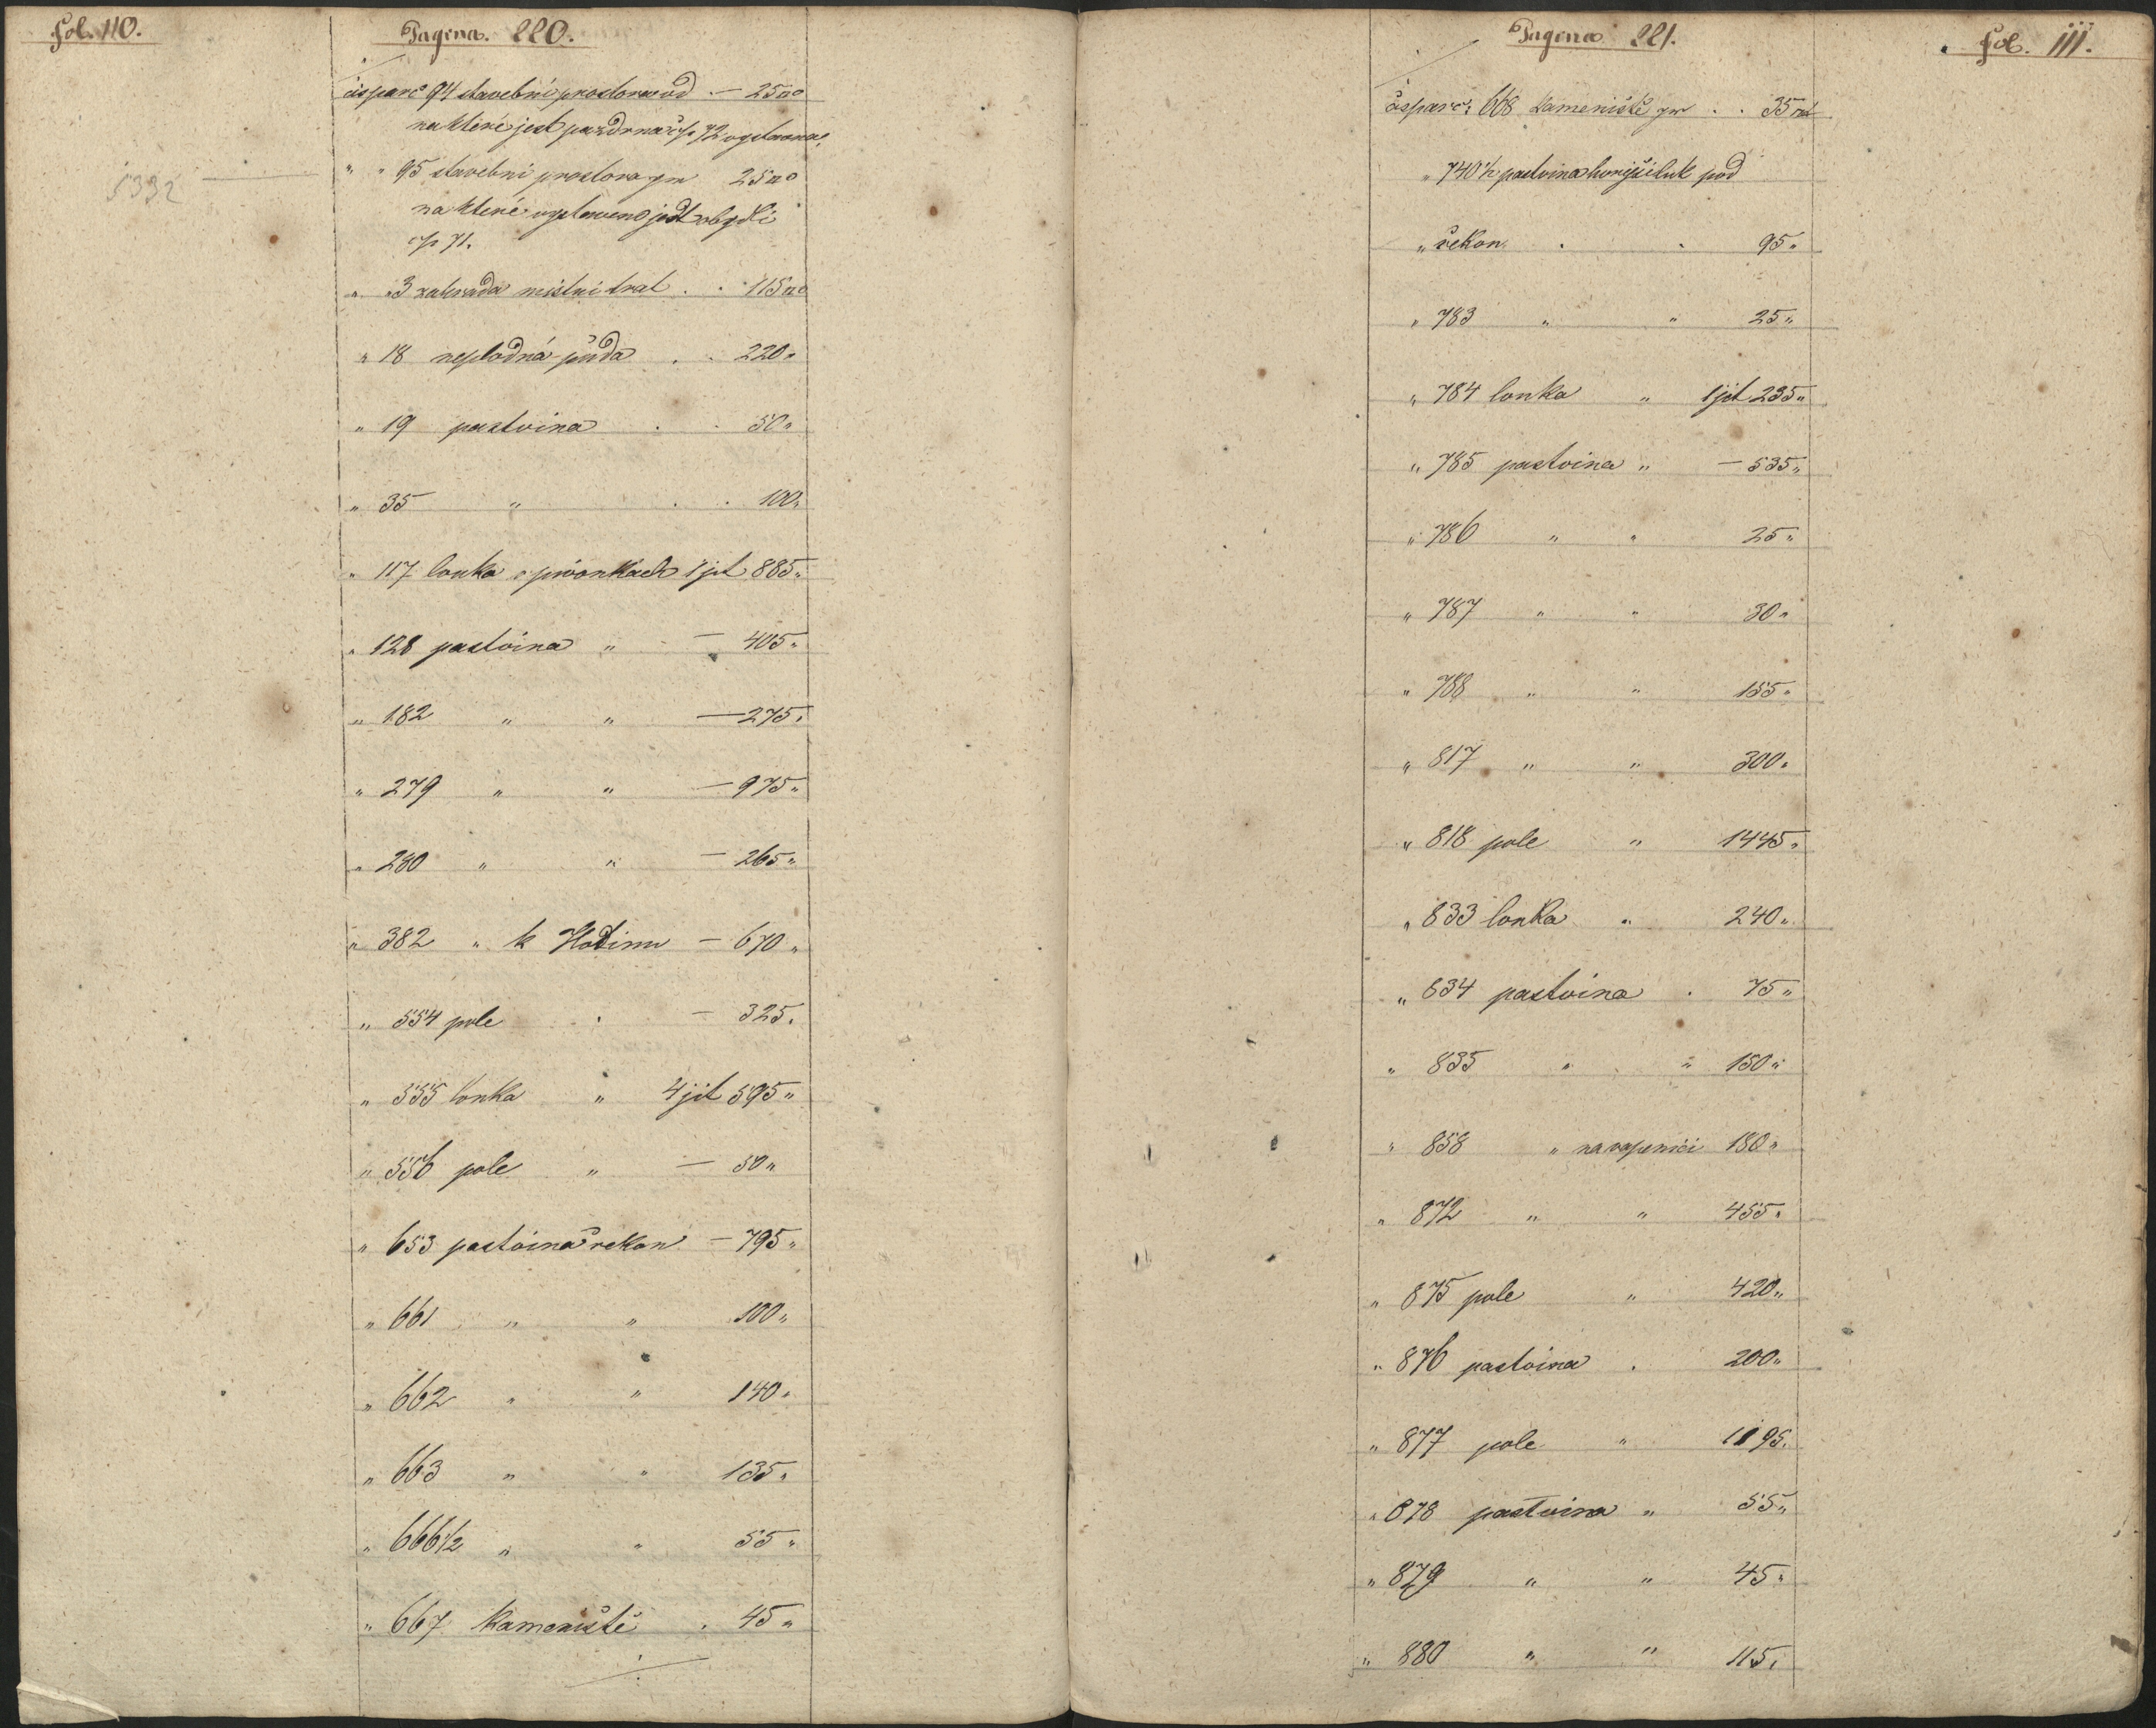 Fol. 110.
Pagina. 220.
čísparc 94 stavební prostora — 25□°
na které jest pazdrna čp 72 vystavena.
5392
" " 95 stavební prostora 25□°
na které vystaveno jest obydlí
čp 71.
" " 3 zahrada místní trat . . 115□°
" 18 neplodná půda . . 220 "
" 19 pastvina . . 50 "
" 35 " . . 100 "
" 117 louka v pivonkách 1 jit 885 "
" 128 pastvina " — 405 "
" 182 " " — 275 "
" 279 " " — 975 "
" 280 " " — 265 "
" 382 " k Hodinu — 670 "
" 554 pole . — 325 "
" 555 louka " 4 jit 595 "
" 556 pole " — 50 "
" 653 pastvina řekou — 795 "
" 661 " " 100 "
" 662 " " 140 "
" 663 " " 135 "
" 666½ " " 55 "
" 667 kameniště . 45 "
Pagina 221.
Fol. 111.
čísparc: 668 kameniště . . 35□°
" 740½ pastvina hořejší luk pod
" řekou . . 95 "
" 783 " " 25 "
" 784 louka " 1 jit 235 "
" 785 pastvina " — 535 "
" 786 " " 25 "
" 787 " " 30 "
" 788 " " 155 "
" 817 " " 300 "
" 818 pole " 1445 "
" 833 louka " 240 "
" 834 pastvina . 75 "
" 835 " " 150 "
" 858 " na vapenici 180 "
" 872 " " 455 "
" 875 pole " 420 "
" 876 pastvina . 200 "
" 877 pole " 1195 "
" 878 pastvina " 55 "
" 879 " " 45 "
" 880 " " 115 "